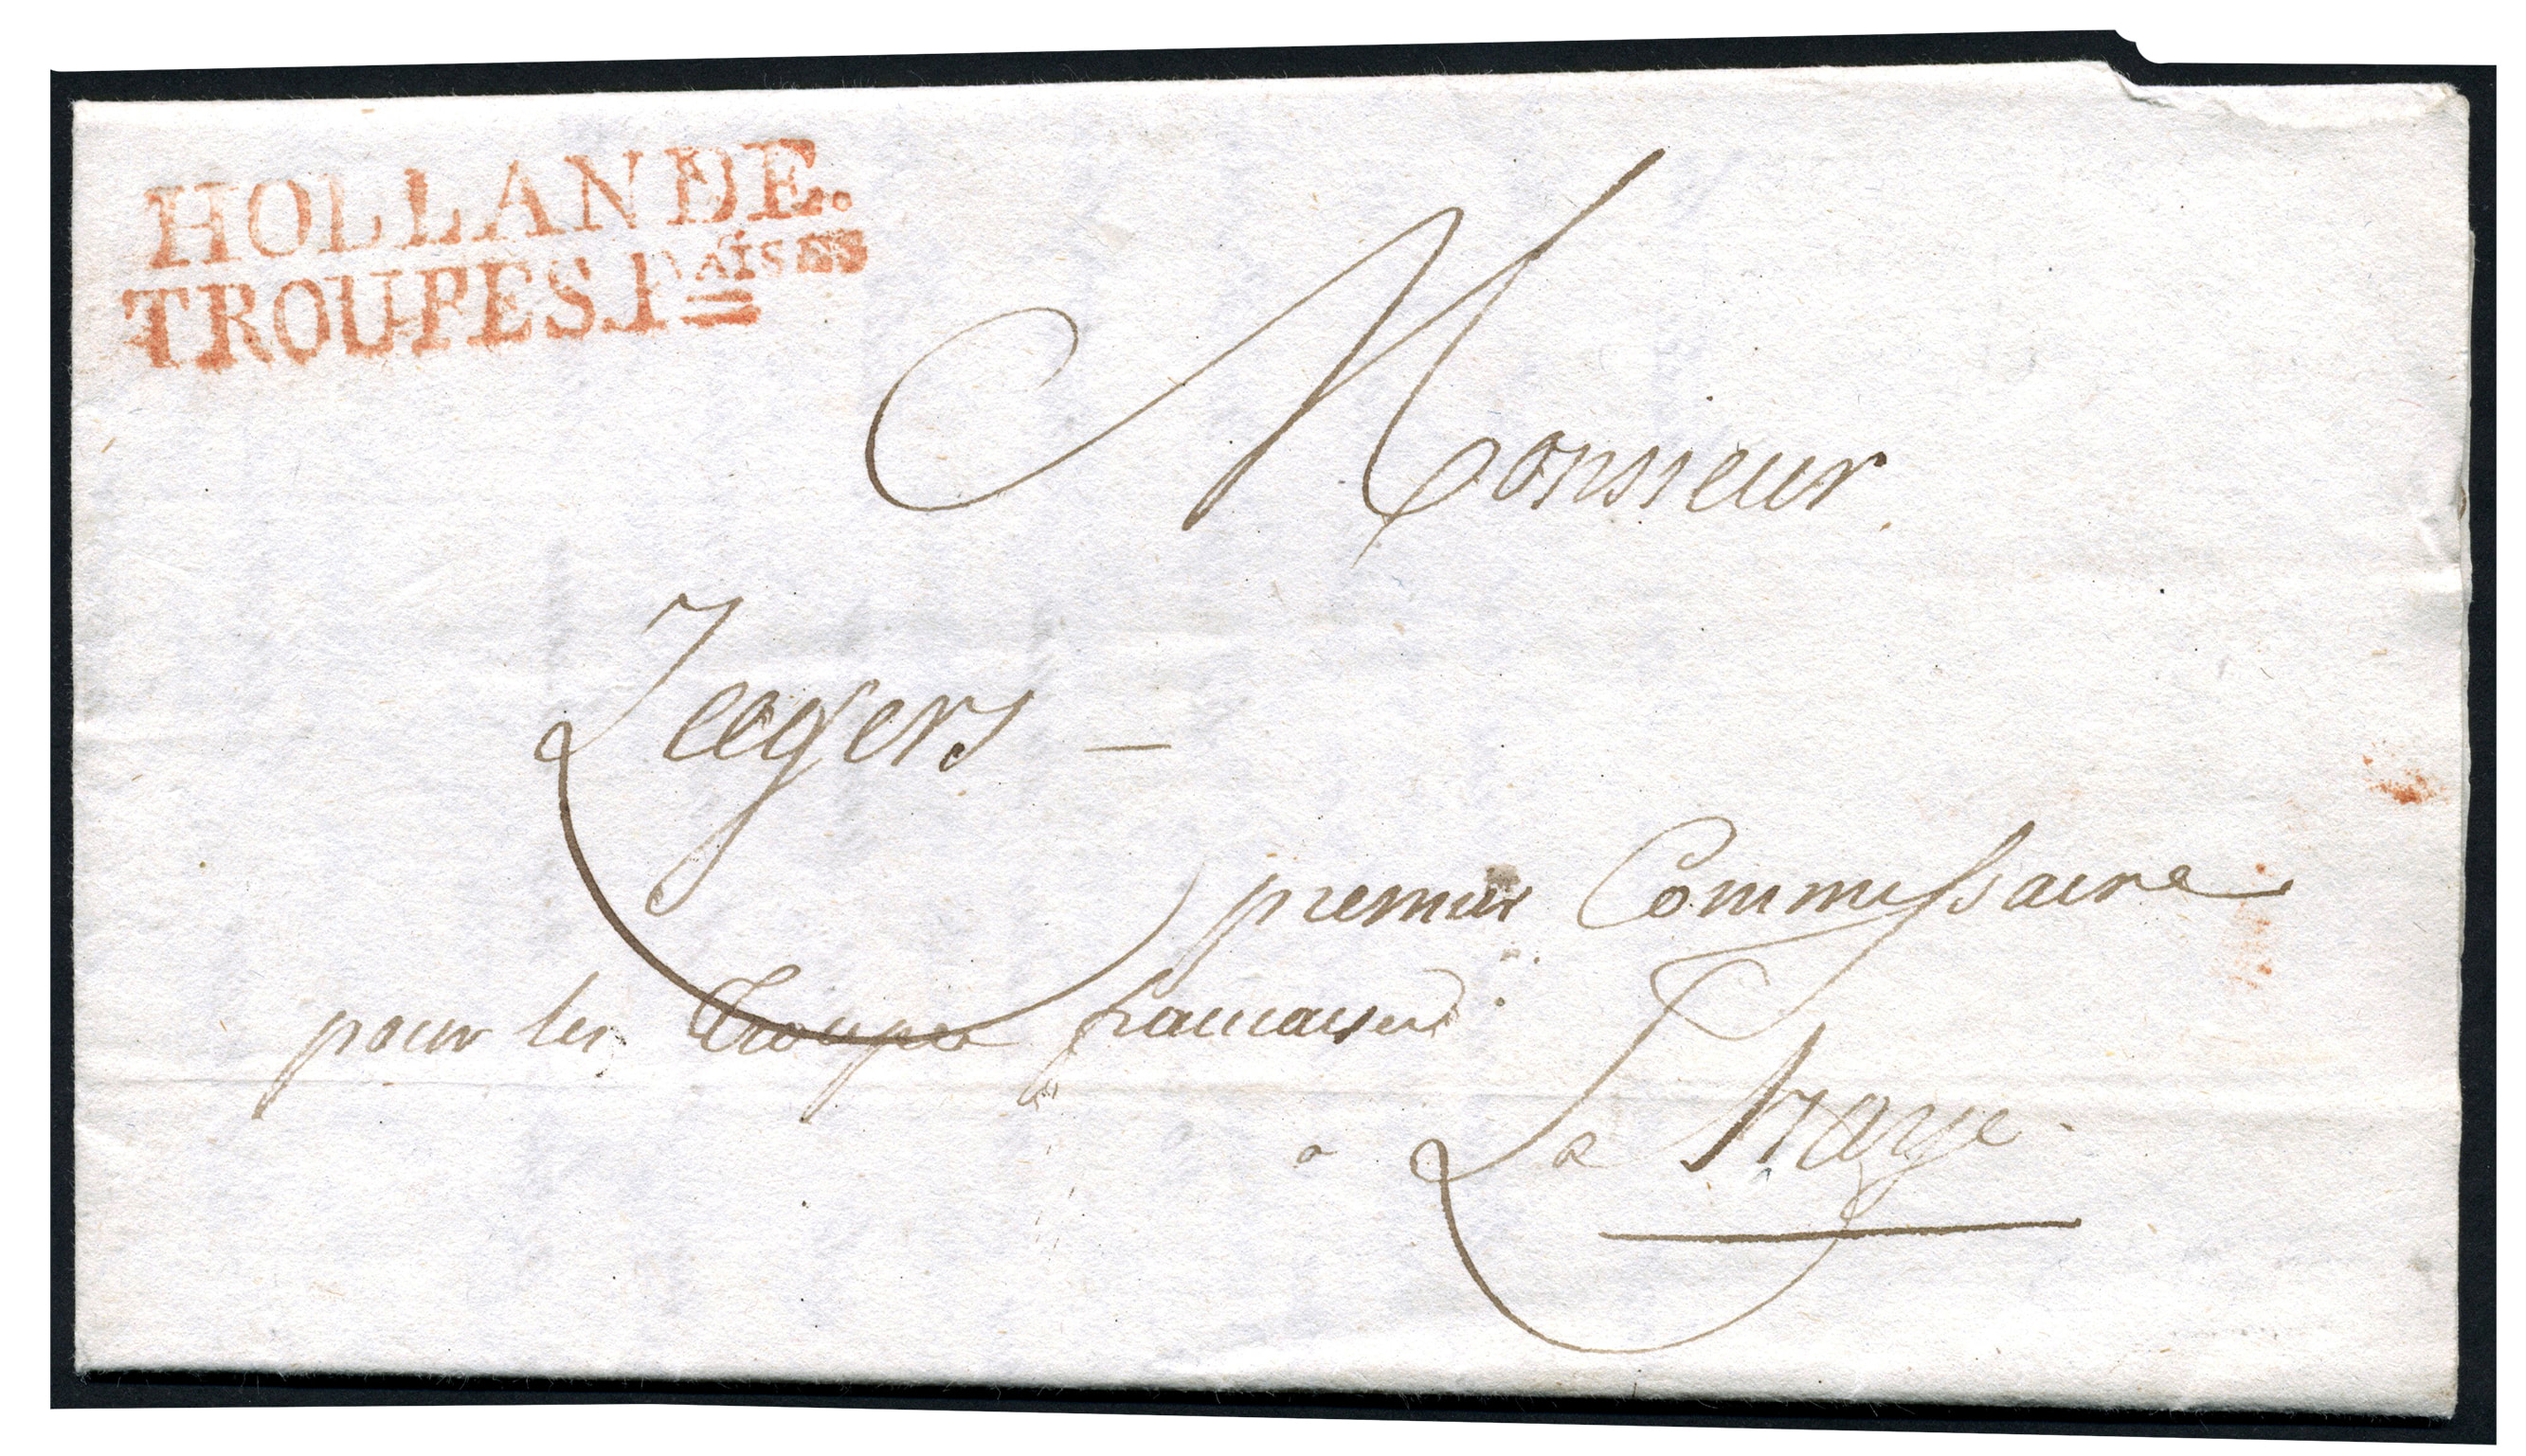 HOLLANDE.
TROUPES Fçaises
Monsieur
Zeegers –
premier Commissaire
pour les Troupes francaises
a La Haye.